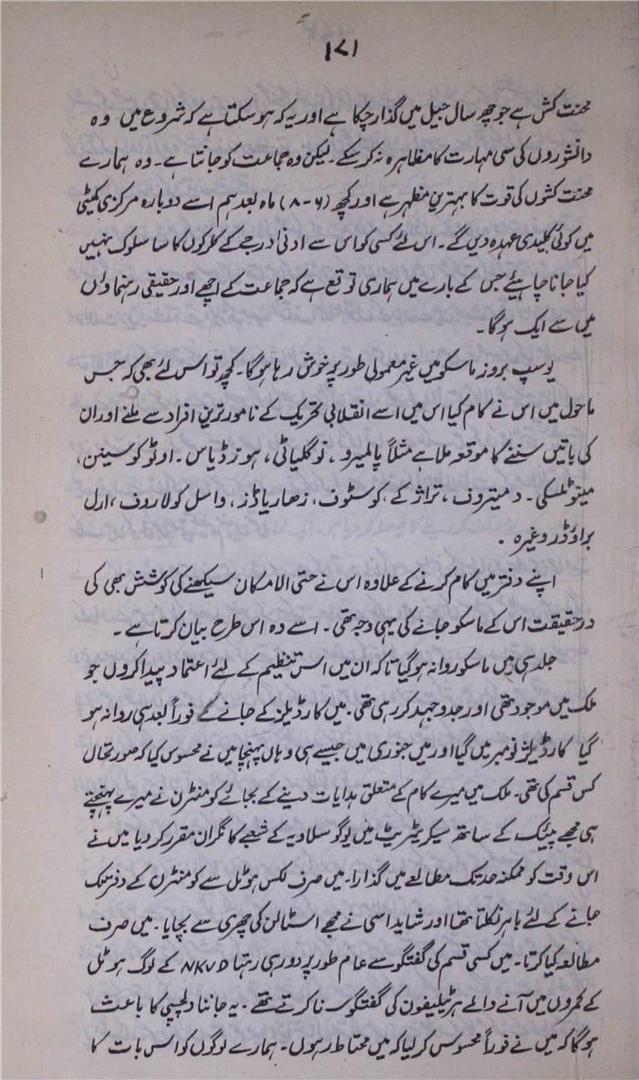 ۱۷۱
محنت کش ہے جو چھ سال جیل میں گذار چکا ہے اور یہ کہ ہو سکتا ہے کہ شروع میں وہ
دانشوروں کی سی مہارت کا مظاہرہ نہ کر سکے۔ لیکن وہ جماعت کو جانتا ہے۔ وہ ہمارے
محنت کشوں کی قوت کا بہترین مظہر ہے اور کچھ (۶-۸) ماہ بعد ہم اسے دوبارہ مرکزی کمیٹی
میں کوئی کلیدی عہدہ دیں گے۔ اس لئے کسی کو اس سے ادنیٰ درجے کے کلرکوں کا سا سلوک نہیں
کیا جانا چاہیئے جس کے بارے میں ہماری توقع ہے کہ جماعت کے اچھے اور حقیقی رہنماؤں
میں سے ایک ہو گا۔
یوسپ بروز ماسکو میں غیر معمولی طور پر خوش رہا ہو گا۔ کچھ تو اس لئے بھی کہ جس
ماحول میں اس نے کام کیا اس میں اسے انقلابی تحریک کے نامور ترین افراد سے ملنے اور ان
کی باتیں سننے کا موقعہ ملا ہے مثلاً پالمیرو، توگلیاٹی، ہوزے ڈیاس۔ اوٹو کوسینن،
مینوئلسکی۔ دمیتروف، تراژکے، کوسٹوف، زھاریاڈز، واسل کولاروف، ارل
براؤڈر وغیرہ۔
اپنے دفتر میں کام کرنے کے علاوہ اس نے حتی الامکان سیکھنے کی کوشش بھی کی
درحقیقت اس کے ماسکو جانے کی یہی وجہ تھی۔ اسے وہ اس طرح بیان کرتا ہے۔
جلد ہی میں ماسکو روانہ ہو گیا تاکہ ان میں اس تنظیم کے لئے اعتماد پیدا کروں جو
ملک میں موجود تھی اور جدوجہد کر رہی تھی۔ میں کارڈیلز کے جانے کے فوراً بعد ہی روانہ ہو
گیا کارڈیلز نومبر میں گیا اور میں جنوری میں جیسے ہی وہاں پہنچا میں نے محسوس کیا کہ صورتحال
کس قسم کی تھی۔ ملک میں میرے کام کے متعلق ہدایات دینے کے بجائے کومنٹرن نے میرے پہنچتے
ہی مجھے کے ساتھ سیکریٹریٹ میں یوگوسلاویہ کے شعبے کا نگران مقرر کر دیا میں نے
اس وقت کو ممکنہ حد تک مطالعے میں گذارا۔ میں صرف لکس ہوٹل سے کومنٹرن کے دفتر تک
جانے کے لئے باہر نکلتا تھا اور شاید اسی نے مجھے اسٹالن کی چھری سے بچایا۔ میں صرف
مطالعہ کیا کرتا۔ میں کسی قسم کی گفتگو سے عام طور پر دور ہی رہتا NKVD کے لوگ ہوٹل
کے کمروں میں آنے والے ہر ٹیلیفون کی گفتگو سنا کرتے تھے۔ یہ جاننا دلچسپی کا باعث
ہو گا کہ میں نے فوراً محسوس کر لیا کہ میں محتاط رہوں۔ ہمارے لوگوں کو اس بات کا